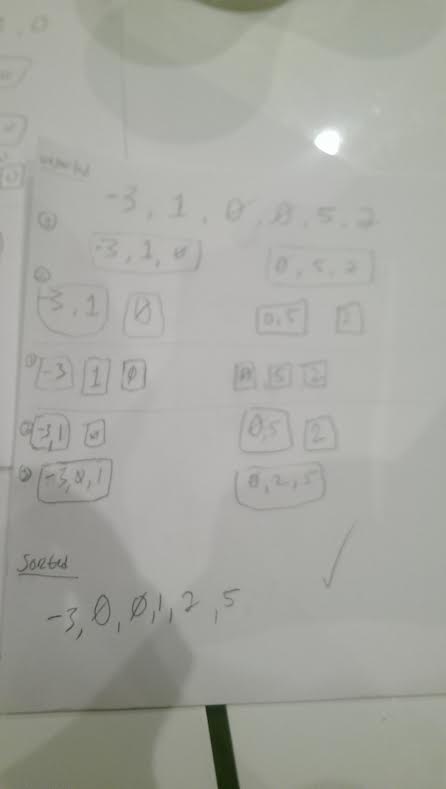 -3, 1, 0, 0, 5, 2
-3, 1, 0 0, 5, 2
-3, 1 0 0, 5 2
-3 1 0 0 5 2
-3, 1 0 0, 5 2
-3, 0, 1 0, 2, 5
Sorted
-3, 0, 0, 1, 2, 5